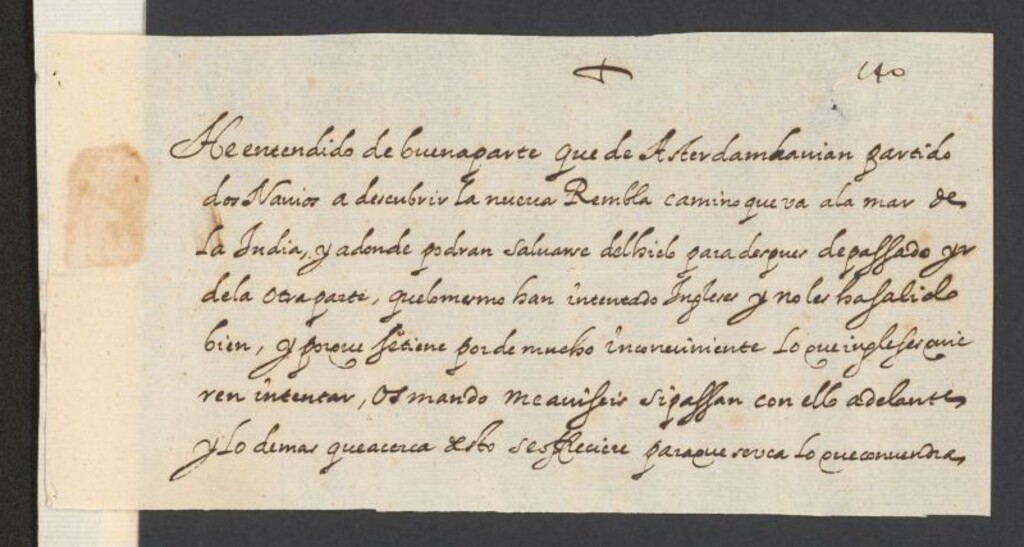 140
He entendido de buena parte que de Asterdam hauian partido
dos Nauios a descubrir la nueua Rembla camino que va a la mar de
la India, y adonde podran saluarse del hielo para despues de passado yr
de la otra parte, que lo mesmo han intentado Ingleses y no les ha salido
bien, y porque se tiene por de mucho inconuiniente lo que ingleses quie
ren intentar, os mando me auiseis si passan con ello adelante
y lo demas que acerca desto se offreciere para que se vea lo que conuendra